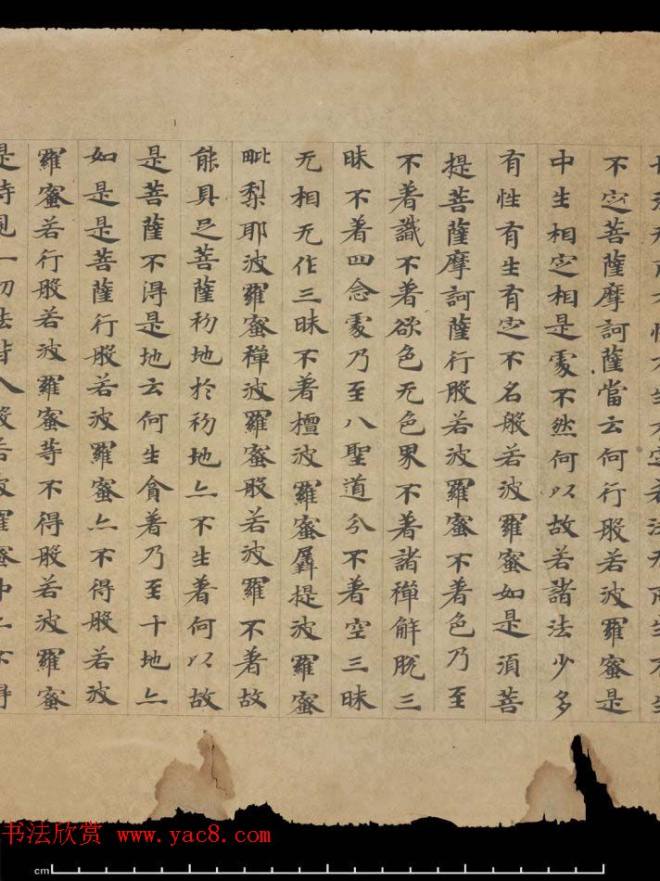 不㝎菩薩摩訶薩當云何行般若波羅蜜是
中生相㝎相是處不然何以故若諸法少多
有性有生有㝎不名般若波羅蜜如是湏菩
提菩薩摩訶薩行般若波羅蜜不著色乃至
不著識不著欲色无色界不著諸禪解脫三
昧不著四念處乃至八聖道分不著空三昧
无相无作三昧不著檀波羅蜜羼提波羅蜜
毗梨耶波羅蜜禪波羅蜜般若波羅不著故
能具足菩薩初地於初地亦不生著何以故
是菩薩不得是地云何生貪著乃至十地亦
如是是菩薩行般若波羅蜜亦不得般若波
羅蜜若行般若波羅蜜等不得般若波羅蜜
是時見一切法皆入般若波羅蜜中亦不得
书法欣赏 www.yac8.com
cm